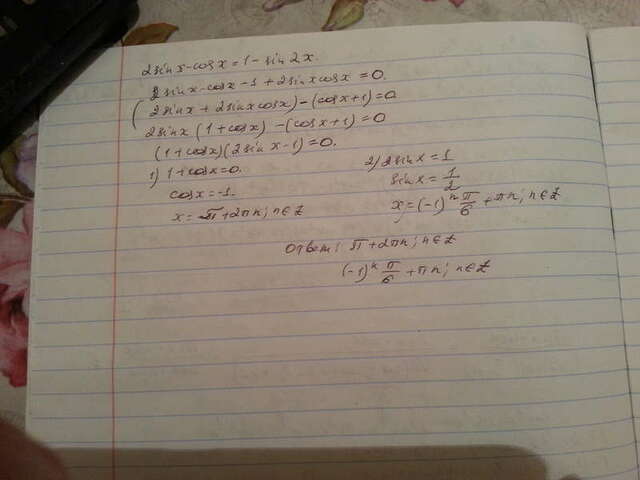 2sinx-cosx=1-sin2x.
2sinx-cosx-1+2sinxcosx=0.
(2sinx+2sinxcosx)-(cosx+1)=0
2sinx(1+cosx)-(cosx+1)=0
(1+cosx)(2sinx-1)=0.
1) 1+cosx=0.
cosx=-1.
x=π+2πn; n∈Z
2) 2sinx=1
sinx=1/2
x=(-1)ⁿ π/6+πn; n∈Z
Ответ: π+2πn; n∈Z
(-1)ⁿ π/6+πn; n∈Z